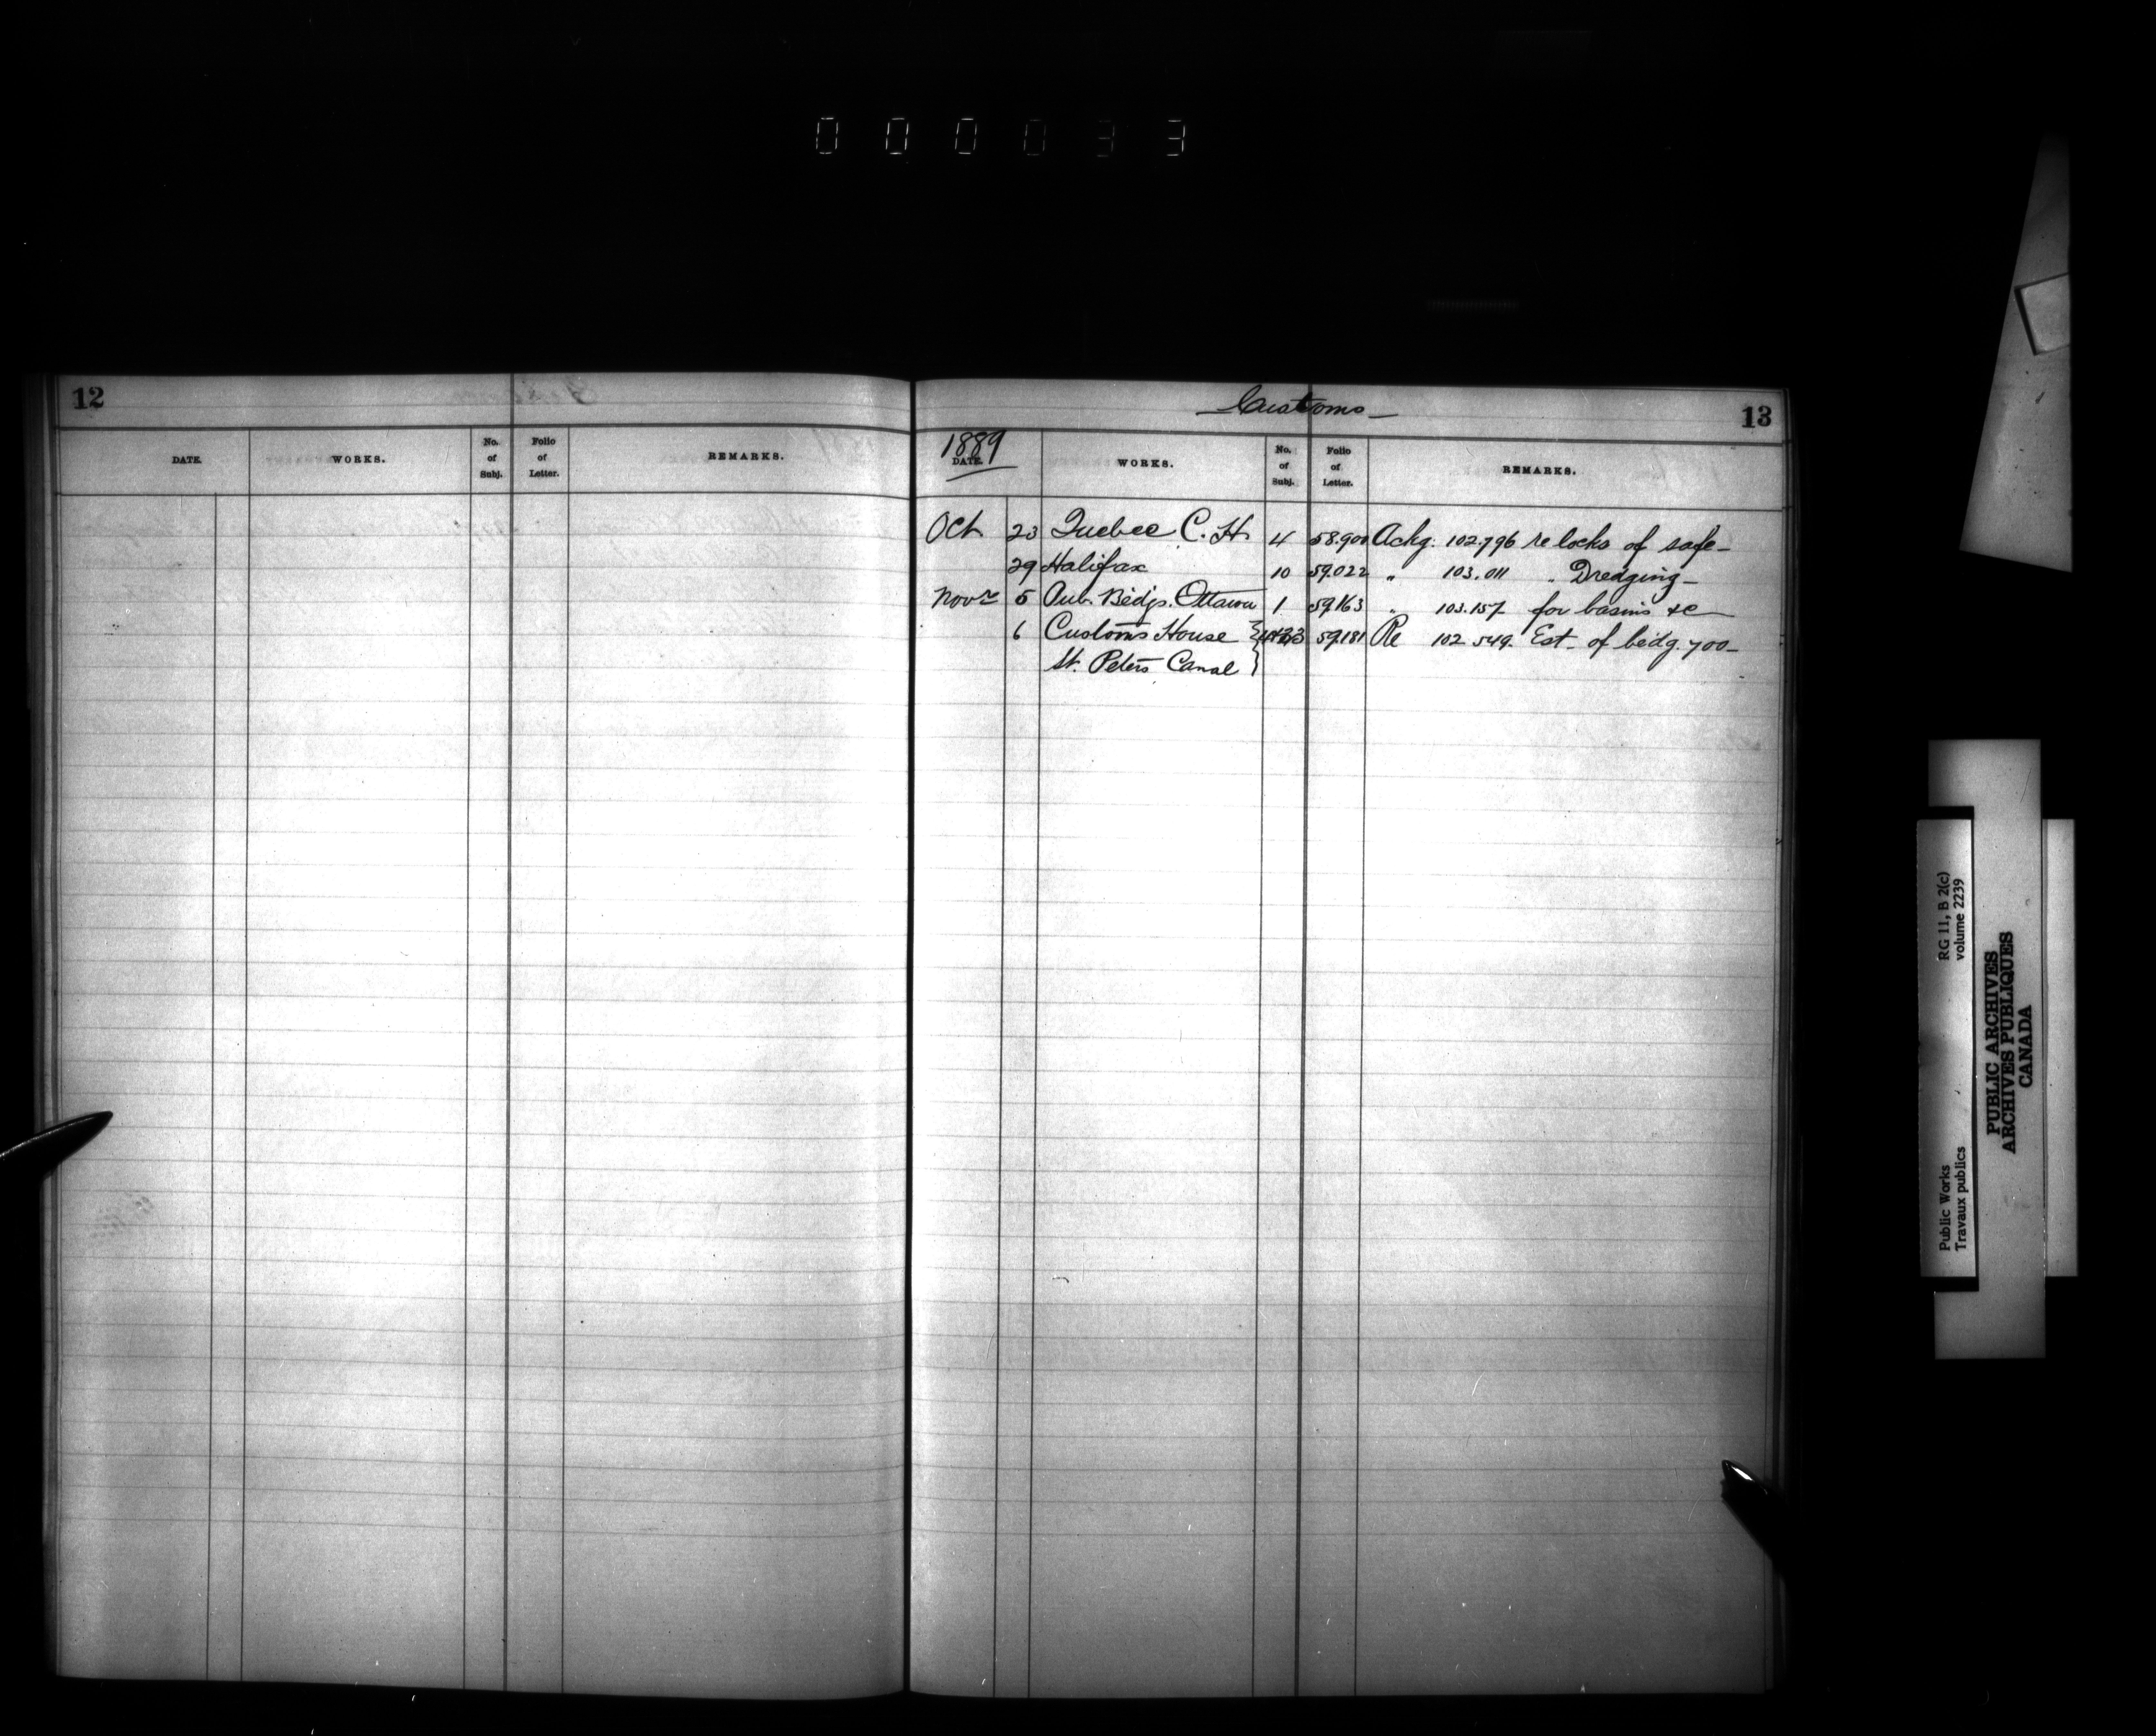 000033
12
DATE. WORKS. No. of Subj. Folio of Letter. REMARKS.
Customs
13
1889
DATE. WORKS. No. of Subj. Folio of Letter. REMARKS.
Oct 23 Quebec C. H. 4 58.900 Ackg. 102.796 re locks of safe
29 Halifax 10 59.022 " 103.011 " Dredging
Novr 5 Pub. Bldgs. Ottawa 1 59.163 " 103.157 for basins &c
6 Customs House } 59.181 Re 102.549. Est. of bldg. 700
St. Peters Canal }
Public Works RG 11, B 2(c)
Travaux publics volume 2239
PUBLIC ARCHIVES
ARCHIVES PUBLIQUES
CANADA